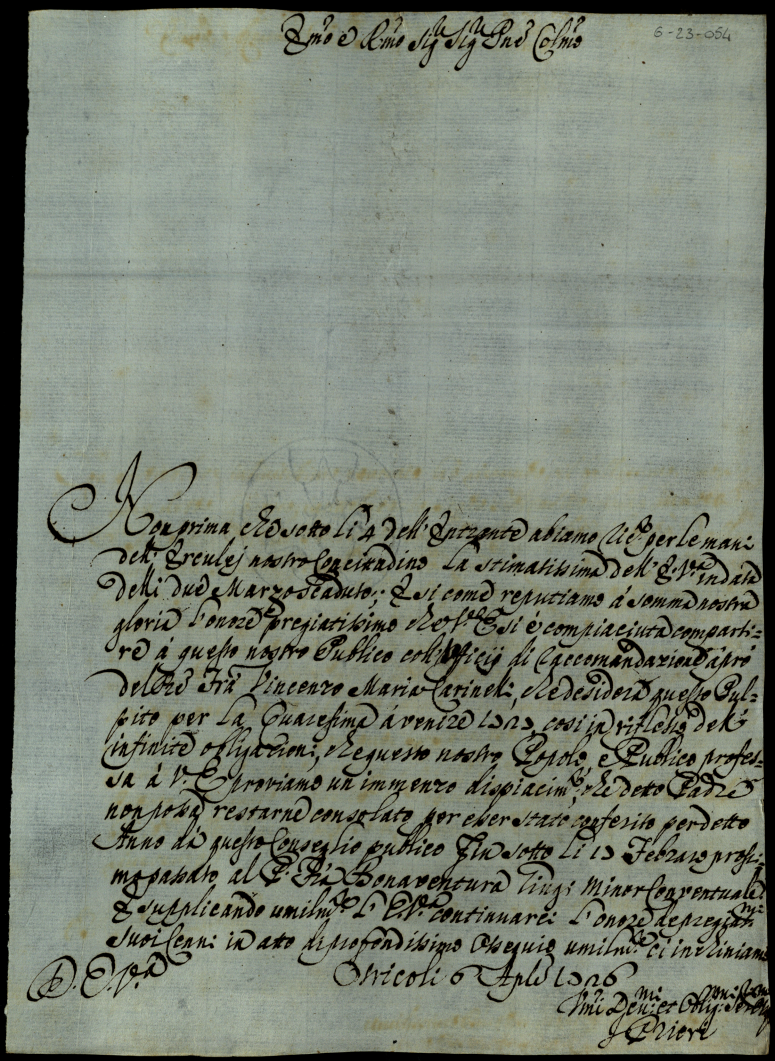 6-23-054
Emo e Rmo Sig Sig Pne Colmo
Non prima, che sotto li 4 dell' Entrante abiamo per le mani
dell' Erculej nostro Concittadino la stimatissima dell' E. Va in data
delli due Marzo scaduto; E si come reputiamo á somma nostra
gloria l'onore pregiatissimo che V. E. si è compiaciuta comparti-
re á questo nostro Publico coll' Officij di raccomandazione á prò
del Pre Frá Vincenzo Maria Carinelli, che desidera questo Pul-
pito per la Quaresima á venire così in riflesso dell'
infinite obligazioni, che questo nostro Popolo, e Publico profes-
sa á V. E. proviamo un immenzo dispiacimto, che detto Padre
non possa restarne consolato per esser stato conferito per detto
Anno dá questo Conseglio publico fin sotto li 13 Febraro prossi-
mo passato al P. Frá Bonaventura Minor Conventuale
E supplicando umilmte l'E. Va continuarci l'onore de pregiatmi
suoi Cenni in atto di profondissimo ossequio umilmte ci inchiniamo
D. E. Va
Otricoli 6 Aple 1726
Umi Devmi et Oblig
Priori